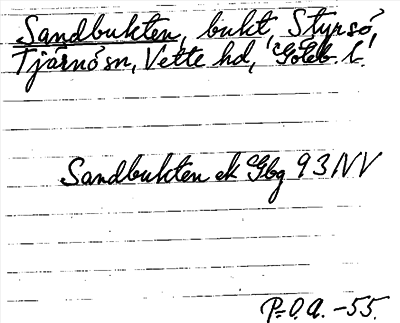 Sandbukten, bukt, Styrsö,
Tjärnö sn, Vette hd, Göteb. l.
Sandbukten ek Gbg 93 NV
P=O.A. -55.